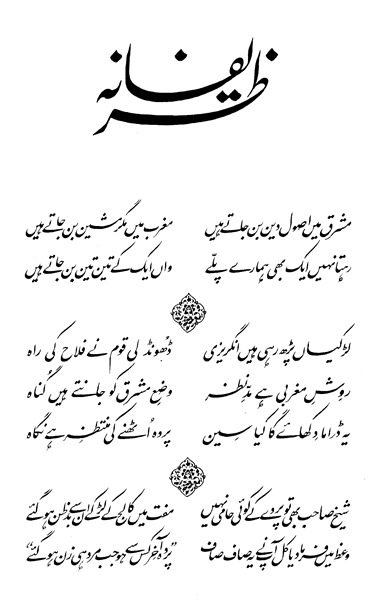 ظریفانہ
مشرق میں اصول دین بن جاتے ہیں مغرب میں مگر مشین بن جاتے ہیں
رہتا نہیں ایک بھی ہمارے پلّے واں ایک کے تین تین بن جاتے ہیں
لڑکیاں پڑھ رہی ہیں انگریزی ڈھونڈ لی قوم نے فلاح کی راہ
روشِ مغربی ہے مدِّنظر وضعِ مشرق کو جانتے ہیں گناہ
یہ ڈراما دکھائے گا کیا سین پردہ اٹھنے کی منتظر ہے نگاہ
شیخ صاحب بھی تو پردے کے کوئی حامی نہیں مفت میں کالج کے لڑکے ان سے بدظن ہو گئے
وعظ میں فرما دیا کل آپ نے یہ صاف صاف "پردہ آخر کس سے ہو جب مرد ہی زن ہو گئے"